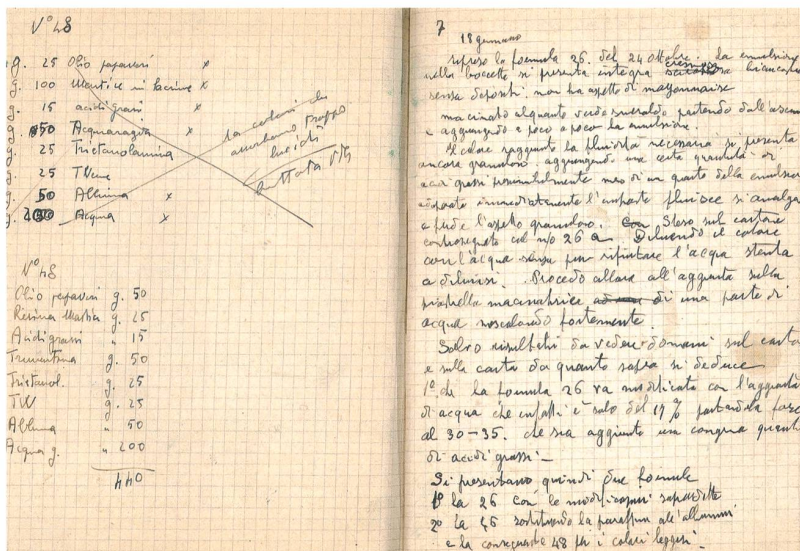 N° 48
g. 25 Olio papaveri x
g. 100 Mastice in lacrime x
g. 15 acidi grassi x
g. 50 Acquaragia x
g. 25 Trietanolamina
g. 25 TWeen
g. 50 Albumina x
g. 200 Acqua x
da colori che
assorbono troppo
lucidi
buttata via
N° 48
Olio papaveri g. 50
Resina Mastice g. 25
Acidi grassi " 15
Trementina g. 50
Trietanol. g. 25
TW g. 25
Albumina " 50
Acqua g. " 200
440
7
18 gennaio
ripreso la formula 26. del 24 ottobre. La emulsione
nella boccetta si presenta integra cremosa biancastra
senza depositi. non ha aspetto di mayonnaise
macinato alquanto verde smeraldo partendo dall'
e aggiungendo a poco a poco la emulsione.
Il colore raggiunta la fluidità necessaria si presenta
ancora granuloso. aggiungendo una certa quantità di
acidi grassi presumibilmente meno di un quarto della emulsione
immediatamente l'impasto fluisce si amalga
e perde l'aspetto granuloso. Steso sul cartone
contrassegnato col n/o 26 a Diluendo il colore
con l'acqua senza pur rifiutare l'acqua stenta
a diluirsi. Procedo allora all'aggiunta sulla
piastrella macinatrice di una parte di
acqua mescolando fortemente.
Salvo risultati da vedere domani sul cartone
e sulla carta da quanto sopra si deduce
1° che la formula 26 va modificata con l'aggiunta
di acqua che infatti è solo del 17 % portandola forse
al 30-35. che sia aggiunto una congrua quantità
di acidi grassi. -
Si presentano quindi due formule
1° la 26 con le modificazioni sopradette
2° la 46 sostituendo la all'
e la conseguente 48 per i colori leggeri. -